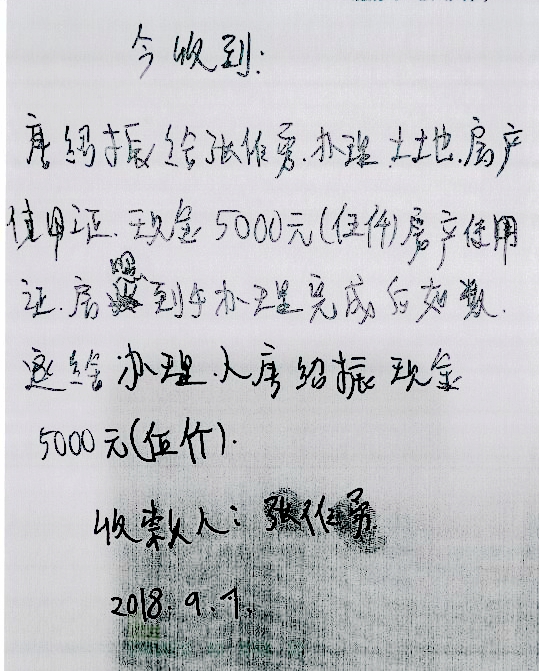 今收到:
唐绍振给张作勇.办理.土地.房产
使用证.现金5000元(伍仟)房产使用
证.唐 到手办理完成后如数.
返给办理.人唐绍振现金
5000元(伍仟).
收款人:张作勇
2018.9.7.